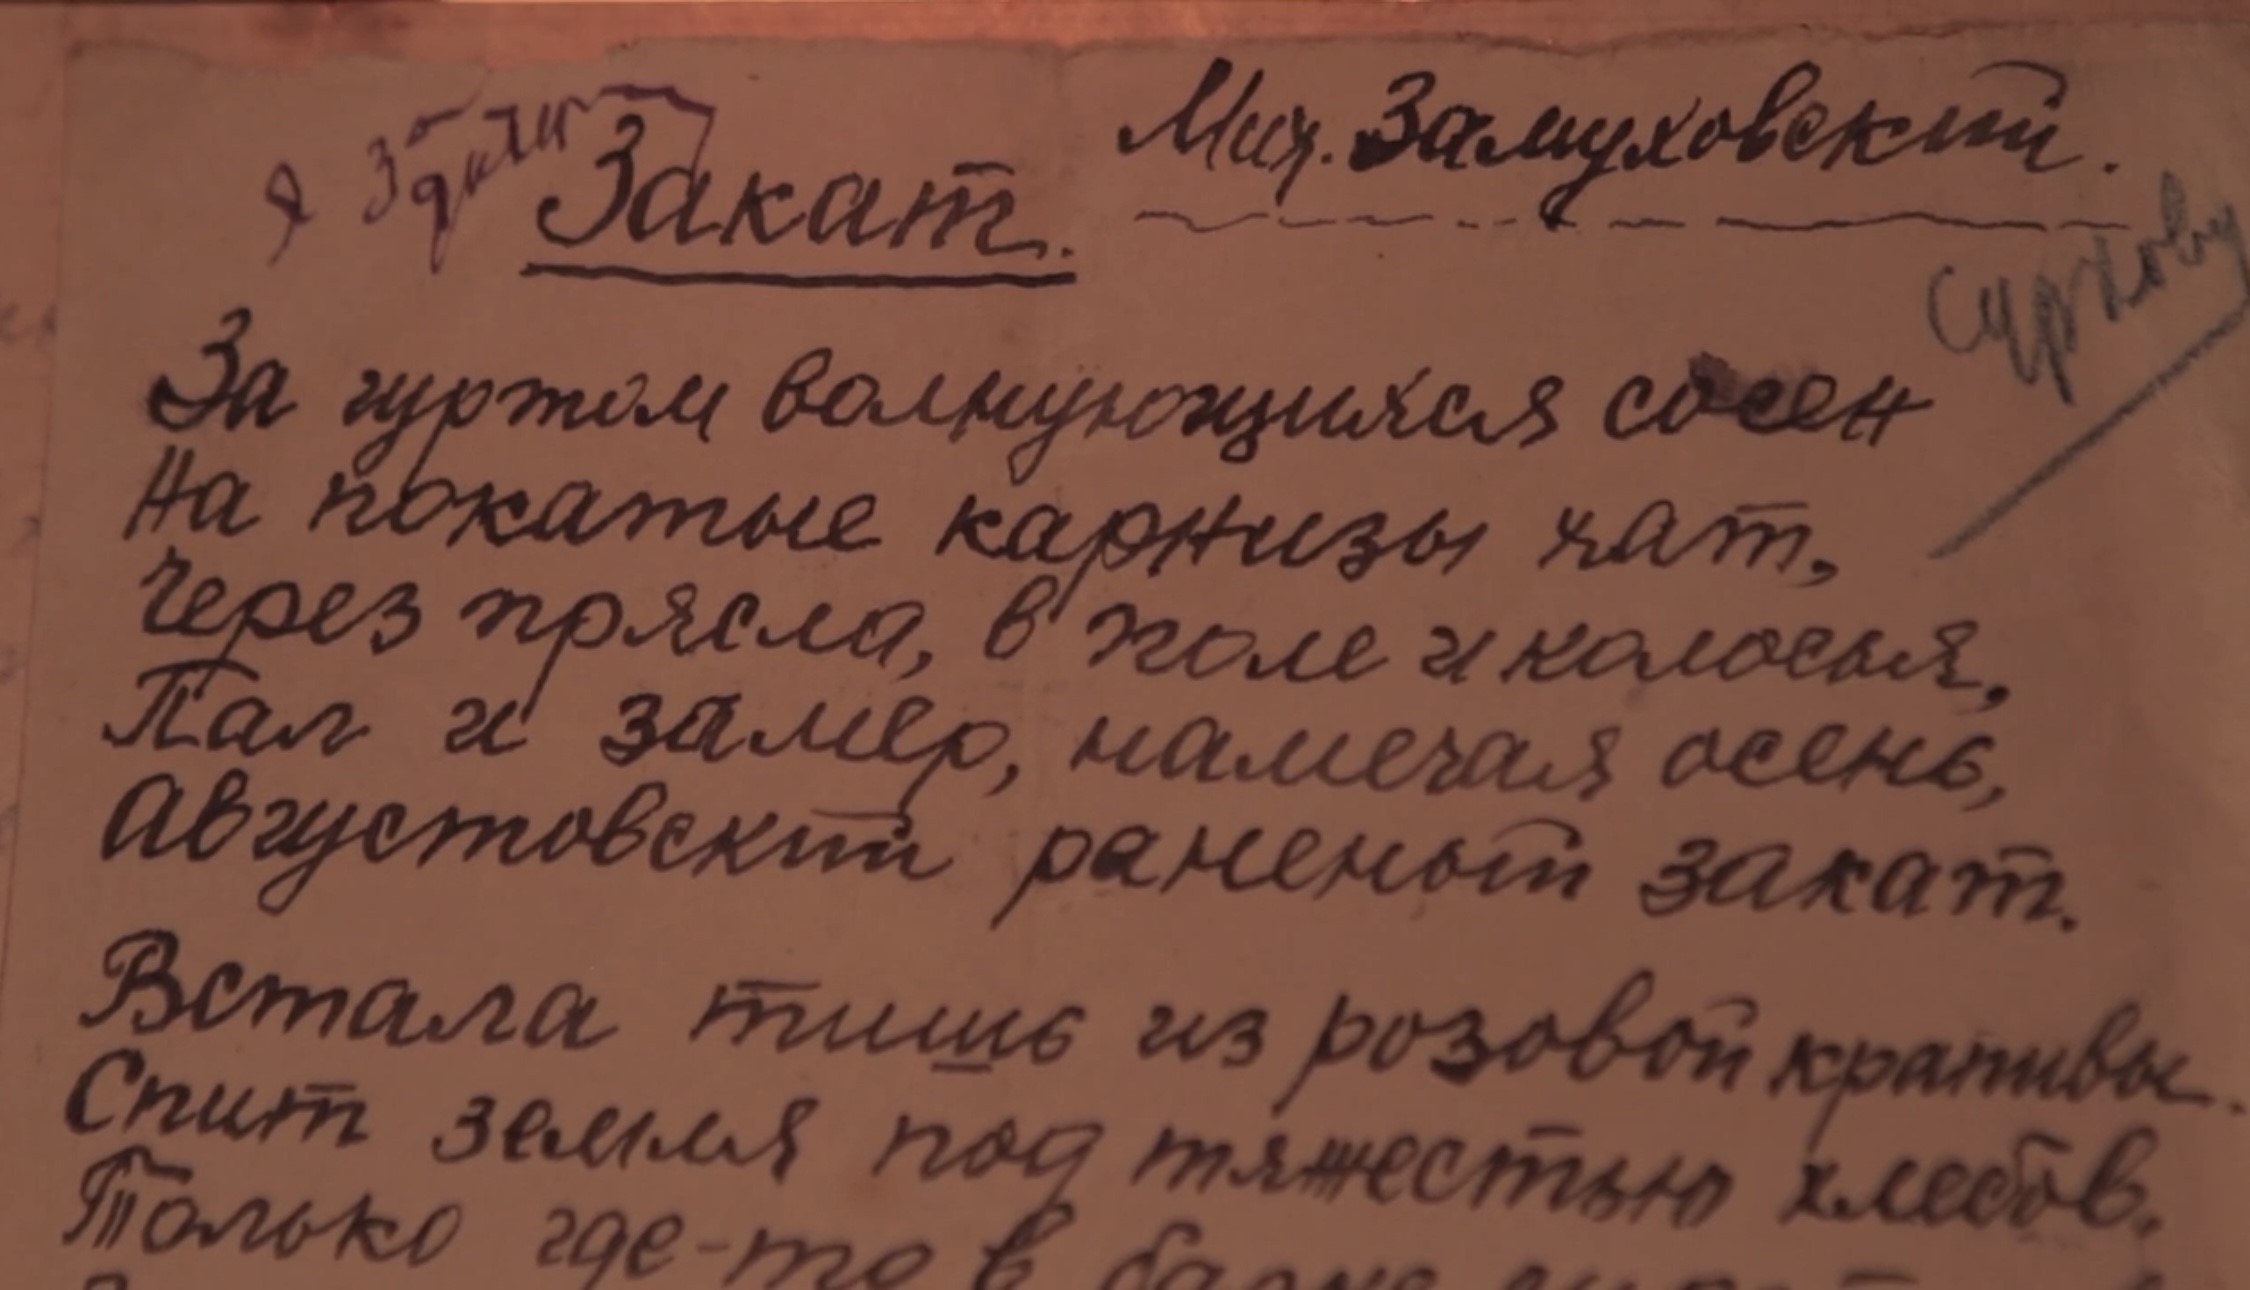 Мих. Замуховский.
я
Закат.
Суркову
За гуртом волнующихся сосен
На покатые карнизы хат,
Через прясла, в поле и колосья,
Пал и замер, намечая осень,
Августовский раненый закат.
Встала тишь из розовой крапивы.
Спит земля под тяжестью хлебов.
Только где-то в